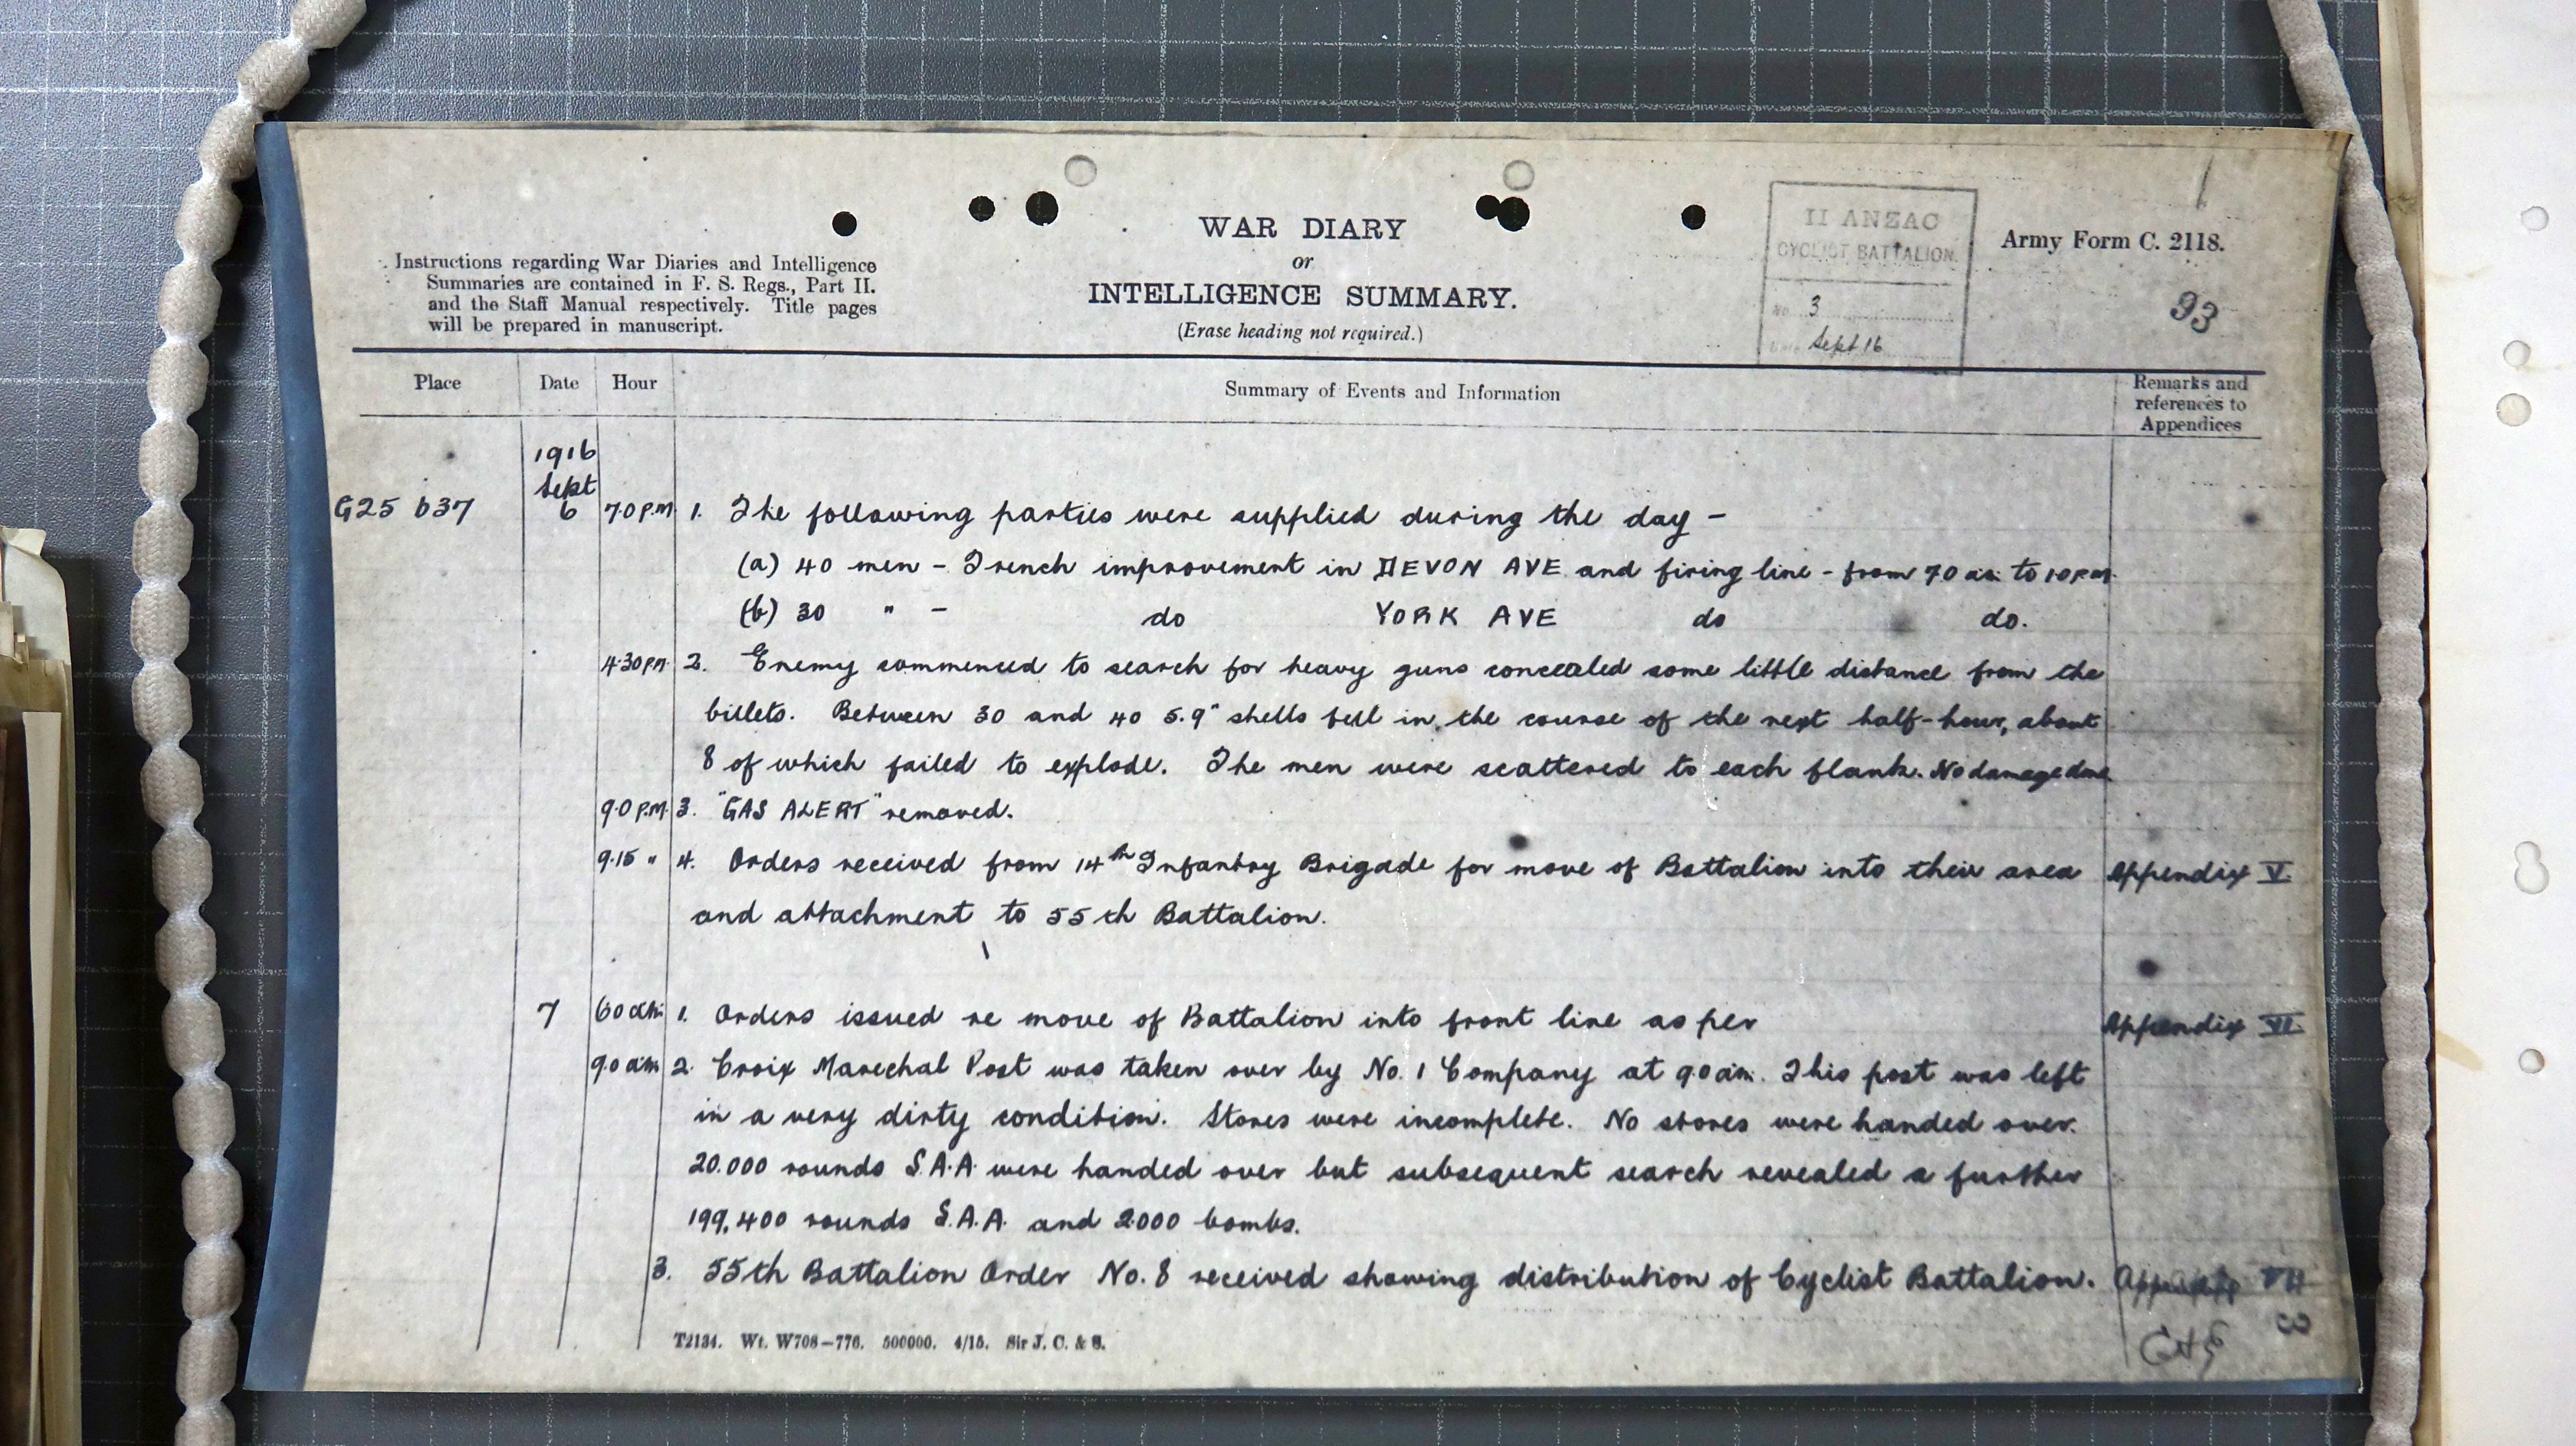 II ANZAC
CYCLIST BATTALION.
No. 3
Date Sept 16
Army Form C. 2118.
93
WAR DIARY
or
INTELLIGENCE SUMMARY.
(Erase heading not required.)
Instructions regarding War Diaries and Intelligence
Summaries are contained in F. S. Regs., Part II.
and the Staff Manual respectively. Title pages
will be prepared in manuscript.
Place Date Hour Summary of Events and Information Remarks and
references to
Appendices
1916
Sept
G25 b37 6 7.0 P.M. 1. The following parties were supplied during the day –
(a) 40 men – Trench improvement in DEVON AVE and firing line – from 7.0 am to 10 P.M.
(b) 30 " – do YORK AVE do do.
4.30 P.M. 2. Enemy commenced to search for heavy guns concealed some little distance from the
billets. Between 30 and 40 5.9" shells fell in the course of the next half-hour, about
8 of which failed to explode. The men were scattered to each flank. No damage done
9.0 P.M. 3. "GAS ALERT" removed.
9.15 " 4. Orders received from 14th Infantry Brigade for move of Battalion into their area Appendix V.
and attachment to 55th Battalion.
7 6.0 am. 1. Orders issued re move of Battalion into front line as per Appendix VI.
9.0 am 2. Croix Marechal Post was taken over by No. 1 Company at 9.0 am. This post was left
in a very dirty condition. Stores were incomplete. No stores were handed over.
20.000 rounds S.A.A. were handed over but subsequent search revealed a further
199,400 rounds S.A.A. and 2000 bombs.
3. 55th Battalion Order No. 8 received showing distribution of Cyclist Battalion. Appendix VII
T2134. Wt. W708—776. 500000. 4/15. Sir J. C. & S.